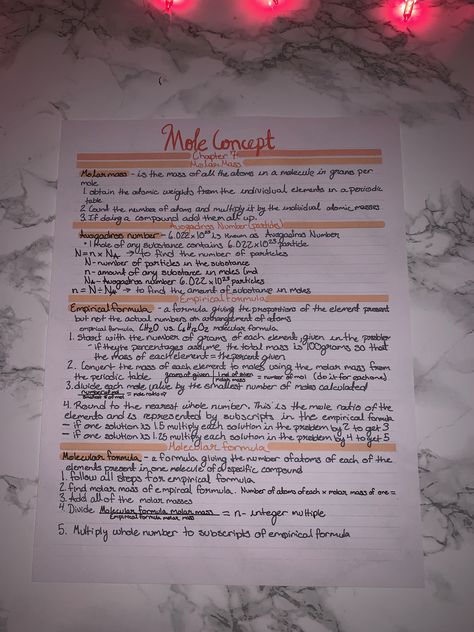 Mole Concept
Chapter 7
Molar Mass
Molar mass - is the mass of all the atoms in a molecule in grams per
mole
1. obtain the atomic weights from the individual elements in a periodic
table
2. Count the number of atoms and multiply it by the individual atomic masses
3. If doing a compound add them all up.
Avogadros Number (particles)
Avogadros number - 6.022 x 10²³ is known as Avogadros Number
• 1 mole of any substance contains 6.022 x 10²³ particle
N = n x NA → to find the number of particles
N - number of particles in the substance
n - amount of any substance in moles
NA - Avogadros number 6.022 x 10²³
n = N ÷ NA → to find the amount of substance in moles
Empirical formula
Empirical formula - a formula giving the proportions of the element present
but not the actual numbers or arrangement of atoms
empirical formula CH₂O vs. C₆H₁₂O₂ molecular formula
1. Start with the number of grams of each element, given in the problem
- if they're percentages assume the total mass is 100 grams so that
the mass of each element = the percent given
2. Convert the mass of each element to moles using the molar mass from
the periodic table. grams of given | 1 mol of given / molar mass = number of mol (do is for each one)
3. divide each mole value by the smallest number of moles calculated
= mole ratio
4. Round to the nearest whole number. This is the mole ratio of the
elements and is represented by subscripts in the empirical formula
- if one solution is 1.5 multiply each solution in the problem by 2 to get 3
- if one solution is 1.25 multiply each solution in the problem by 4 to get 5
Molecular formula
Molecular formula - a formula giving the number of atoms of each of the
elements present in one molecule of a specific compound
1. follow all steps for empirical formula
2. find molar mass of empirical formula. Number of atoms of each x molar mass of one =
3. Add all of the molar masses
4. Divide Molecular formula molar mass / Empirical formula molar mass = n - integer multiple
5. Multiply whole number to subscripts of empirical formula